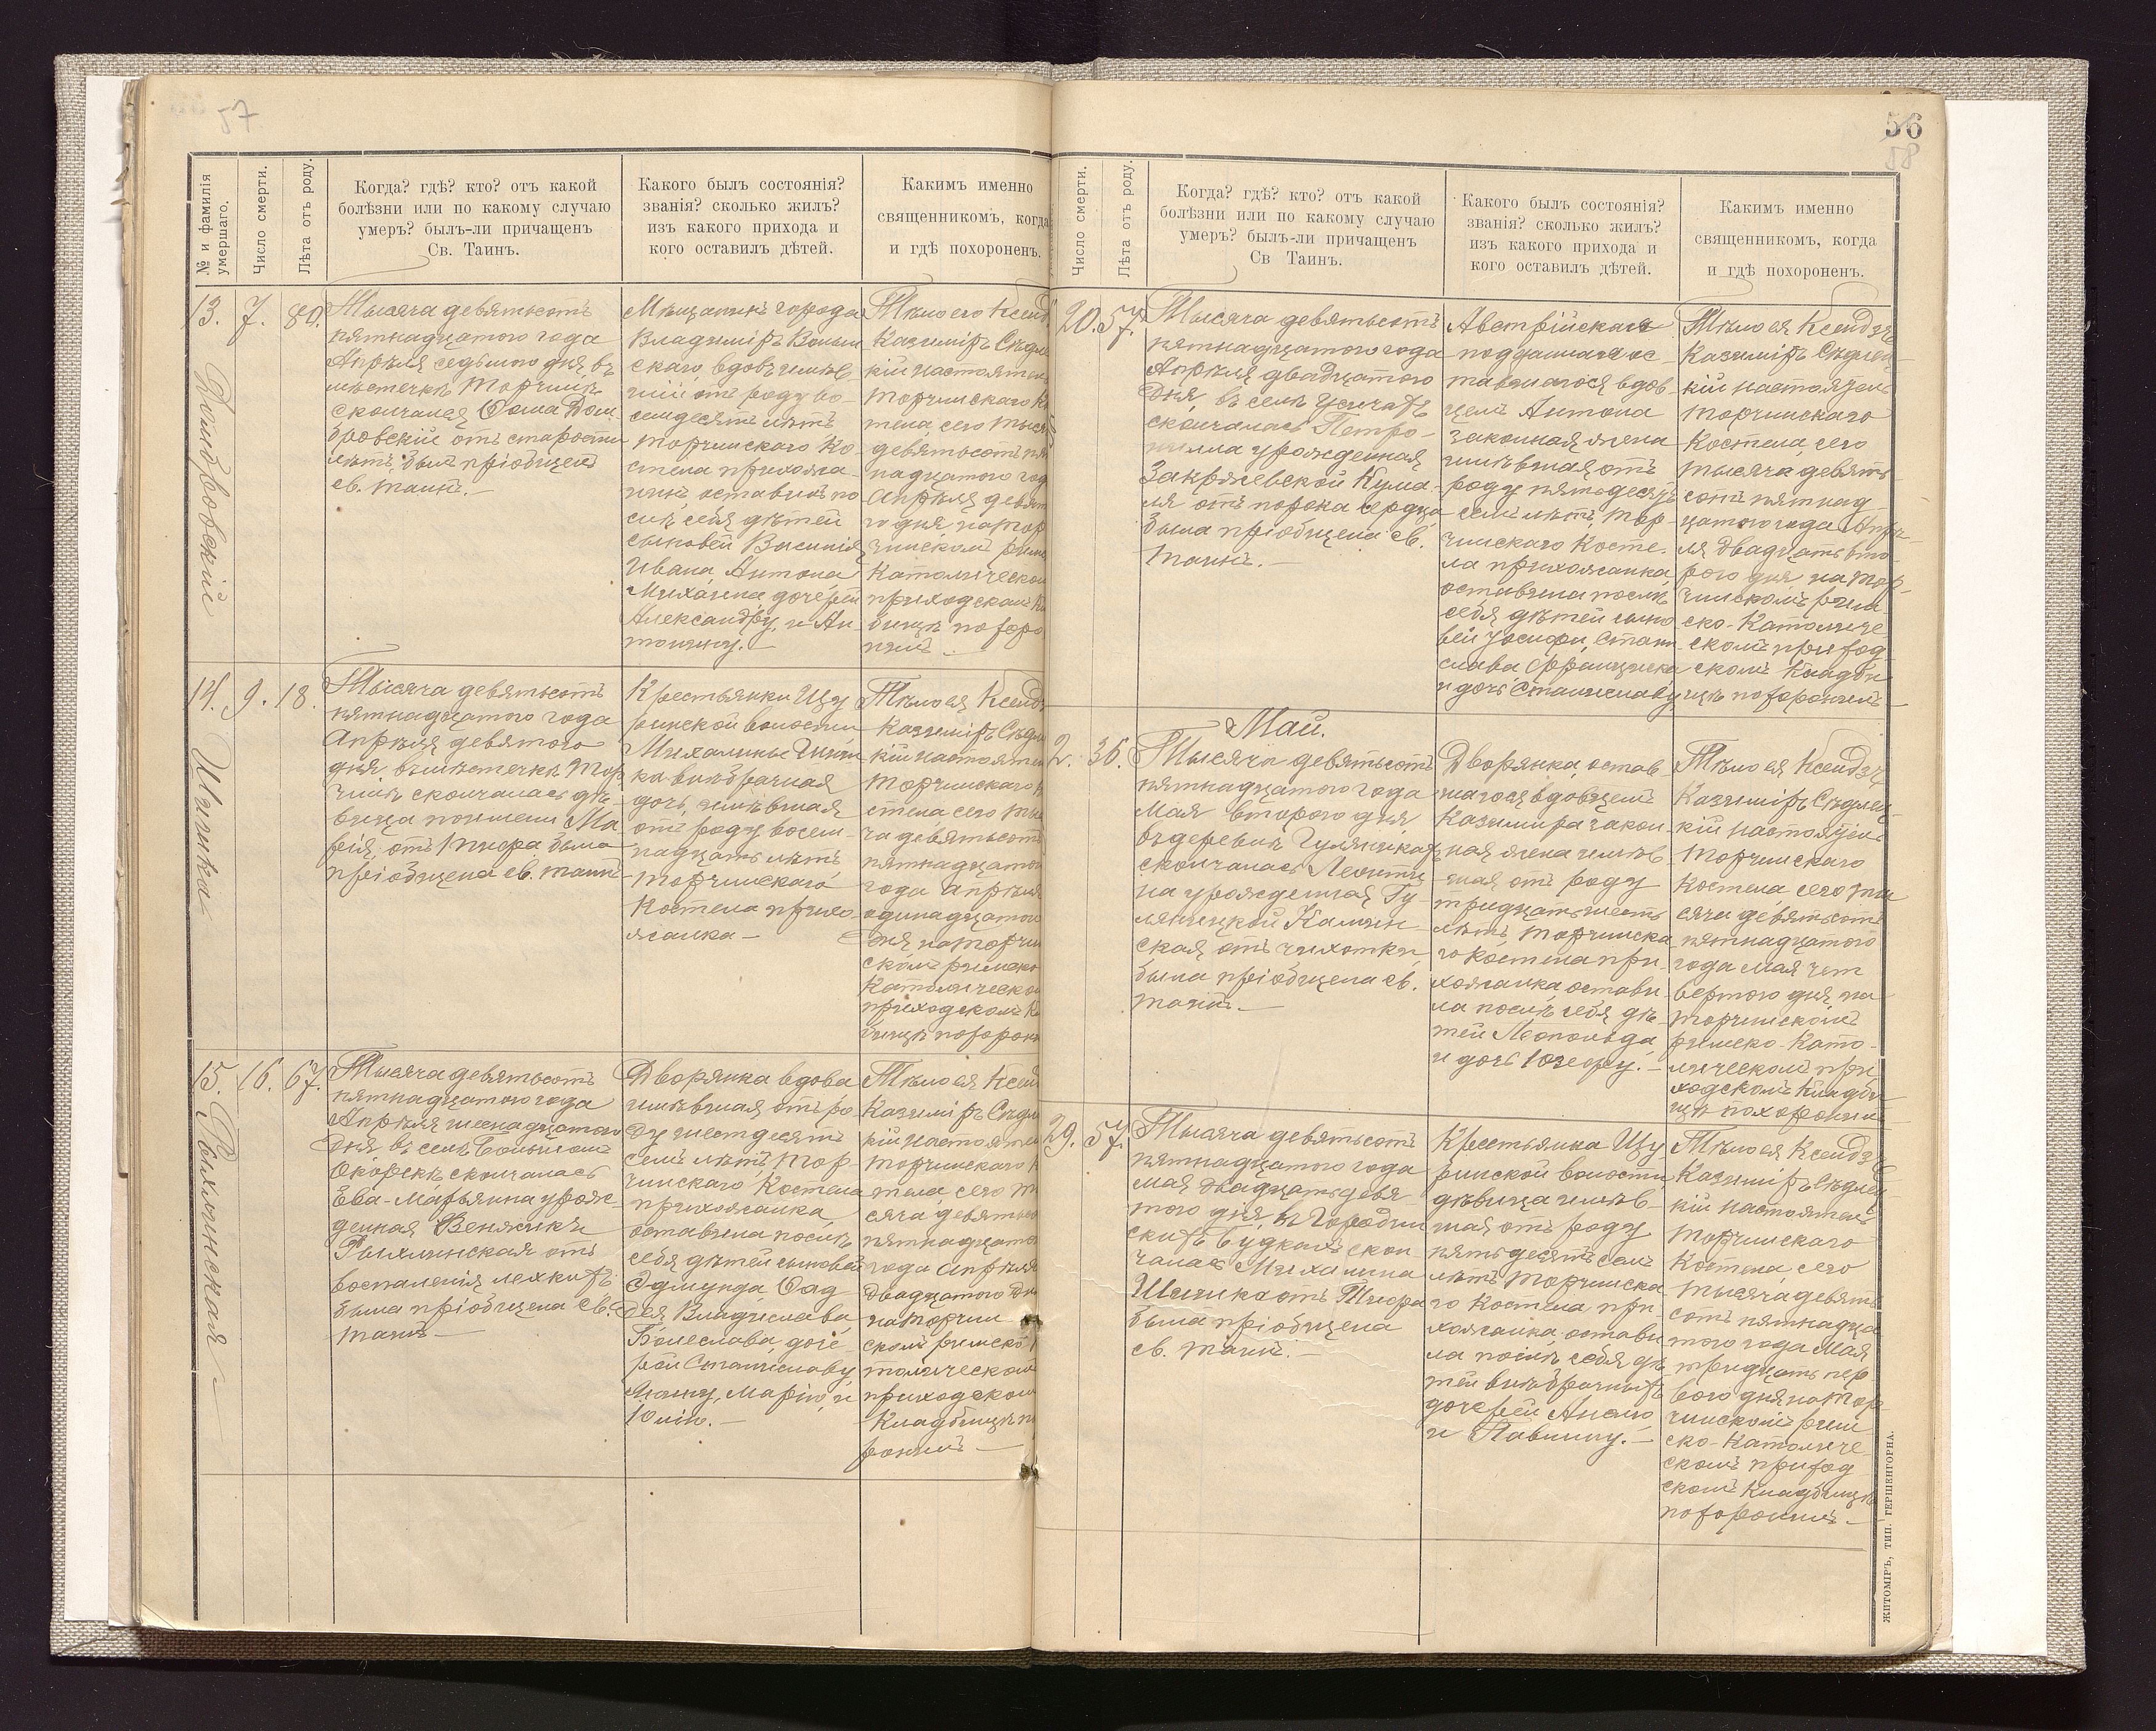 57
№ и фамилія умершаго.
Число смерти.
Лѣта отъ роду.
Когда? гдѣ? кто? отъ какой
болѣзни или по какому случаю
умеръ? былъ-ли причащенъ
Св. Таинъ.
Какого былъ состоянія?
званія? сколько жилъ?
изъ какого прихода и
кого оставилъ дѣтей.
Каким именно
священникомъ, когда
и гдѣ похороненъ.
13.
Домбровскій
7.
80.
Тысяча девятьсотъ
пятнадцатого года
Апрѣля седьмого дня, въ
мѣстечкѣ Торчинѣ
скончался Ѳома Дом-
бровскій отъ старости
лѣтъ, былъ пріобщенъ
св. таинъ.-
Мѣщанинъ города
Владимiръ Волын
скаго, вдовъ имѣв
шій отъ роду во-
семдесятъ лѣтъ
Торчинскаго Ко-
стела прихожа-
нинъ оставилъ по
слѣ себя дѣтей
сыновей Василія
Ивана, Антона
Михаила, дочерей
Александру и Ан-
тонину.-
Тѣло его Ксенд
Казимiръ Сѣдле
кій настоятел
Торчинскаго Ко
тела сего тыся
девятьсотъ пят
надцатого год
Апрѣля девят
го дня на Тор
чинскомъ римс
Католическом
приходскомъ К
бищѣ похоро
нилъ.-
14.
Шишка
9.
18.
Тысяча девятьсотъ
пятнадцатого года
Апрѣля девятого
дня, въ мѣстечкѣ Тор
чинѣ скончалась дѣ-
вица поимени Ма
рія, отъ тифа была
пріобщена св. таинъ
Крестьянки Щу
ринской волости
Михалины Шиш
ки внѣбрачная
дочь, имѣвшая
отъ роду восем-
надцать лѣтъ
Торчинскаго
Костела прихо-
жанка-
Тѣло ея Ксендз
Казимiръ Сѣдле
кій настоятел
Торчинскаго К
стела сего ты
ча девятьсотъ
пятнадцатого
года Апрѣля
одинадцатого
дня на Торчин
скомъ римско
Католическом
приходскомъ К
бищѣ похорон
15.
Рыхлинская
16.
67.
Тысяча девятьсотъ
пятнадцатого года
Апрѣля шенадцатого
дня, въ селѣ Большомъ
Окорскѣ скончалась
Ева-Марьянна урож-
денная Венжикъ
Рыхлинская отъ
воспаленія легкихъ
была пріобщена св.
таинъ-
Дворянка вдова
имѣвшая отъ ро
ду шестдесятъ
семь лѣтъ Тор-
чинскаго Костела
прихожанка
оставила послѣ
себя дѣтей сыновей
Эдмунда, Ѳад
дея, Владислава,
Болеслава, доче-
рей Станиславу
Анну, Марію и
Юлію.-
Тѣло ея Ксен
Казимiръ Сѣдл
кій настоятел
Торчинскаго К
тела, сего ты
сяча девятьсо
пятнадцато
года Апрѣля
двадцатого дн
на Торчин
скомъ римско К
толическом
приходском
Кладбищѣ п
ронилъ-
56
58
Число смерти.
Лѣта отъ роду.
Когда? гдѣ? кто? отъ какой
болѣзни или по какому случаю
умеръ? былъ-ли причащенъ
Св Таинъ.
Какого былъ состоянія?
званія? сколько жилъ?
изъ какого прихода и
кого оставилъ дѣтей.
Каким именно
священникомъ, когда
и гдѣ похороненъ.
20.
57.
Тысяча девятьсотъ
пятнадцатого года
Апрѣля двадцатого
дня, въ селѣ Усичахъ
скончалась Петро-
нилла урожденная
Закржевской Кума-
ля отъ порока сердца
была пріобщена св.
таинъ.-
Австрійская
подданная ос
тавшагося вдов
цемъ Антона
законная жена
имѣвшая отъ
роду пятьдесятъ
семь лѣтъ, Тор-
чинскаго Косте-
ла прихожанка
оставила послѣ
себя дѣтей сыно
вей Іосифа, Стани
слава Францишка
и дочь Станиславу
Тѣло ея Ксендзъ
Казимiръ Сѣдлец-
кій настоятель
Торчинскаго
Костела, сего
тысяча девять
сотъ пятнад
цатого года Апрѣ-
ля двадцать вто
рого дня на Тор-
чинскомъ рим
ско-Католиче
скомъ приход
скомъ Кладби
щѣ похоронилъ
Май.
2.
36.
Тысяча девятьсотъ
пятнадцатого года
Мая второго дня
въ деревнѣ Гуляникахъ
скончалась Леонти
на урожденная Гу-
ляницкой Камин-
ская отъ чихотки,
была пріобщена св.
таинъ.-
Дворянка, остав-
шагося вдовцемъ
Казимира закон
ная жена имѣв-
шая отъ роду
тридцать шесть
лѣтъ, Торчинска
го Костела при-
хожанка, остави
ла послѣ себя дѣ-
тей Леопольда
и дочь Юзефу.-
Тѣло ея Ксендзъ
Казимiръ Сѣдлец-
кій настоятель
Торчинскаго
Костела, сего ты
сяча девятьсотъ
пятнадцатого
года Мая чет
вертого дня, на
Торчинскомъ
римско-Като-
лическомъ при
ходскомъ Кладби
щѣ похоронилъ
29.
57.
Тысяча девятьсотъ
пятнадцатого года
Мая двадцать девя
того дня, въ Городин
скихъ Будкахъ скон
чалась Михалина
Шишка отъ Тифа
была пріобщена
св. таинъ.-
Крестьянка Щу
ринской волости
дѣвица имѣв-
шая отъ роду
пятьдесятъ семь
лѣтъ Торчинска
го Костела при
хожанка остави
ла послѣ себя дѣ
тей внѣбрачныхъ
дочерей Анелю
и Павлину.-
Тѣло ея Ксендзъ
Казимiръ Сѣдлец
кій настоятель
Торчинскаго
Костела, сего
тысяча девять
сотъ пятнадца
того года Мая
тридцать пер
вого дня на Тор-
чинскомъ рим
ско-Католиче
скомъ приход
скомъ Кладбищѣ
похоронилъ-
ЖИТОМІРЪ, ТИП. ГЕРШЕНГОРНА.